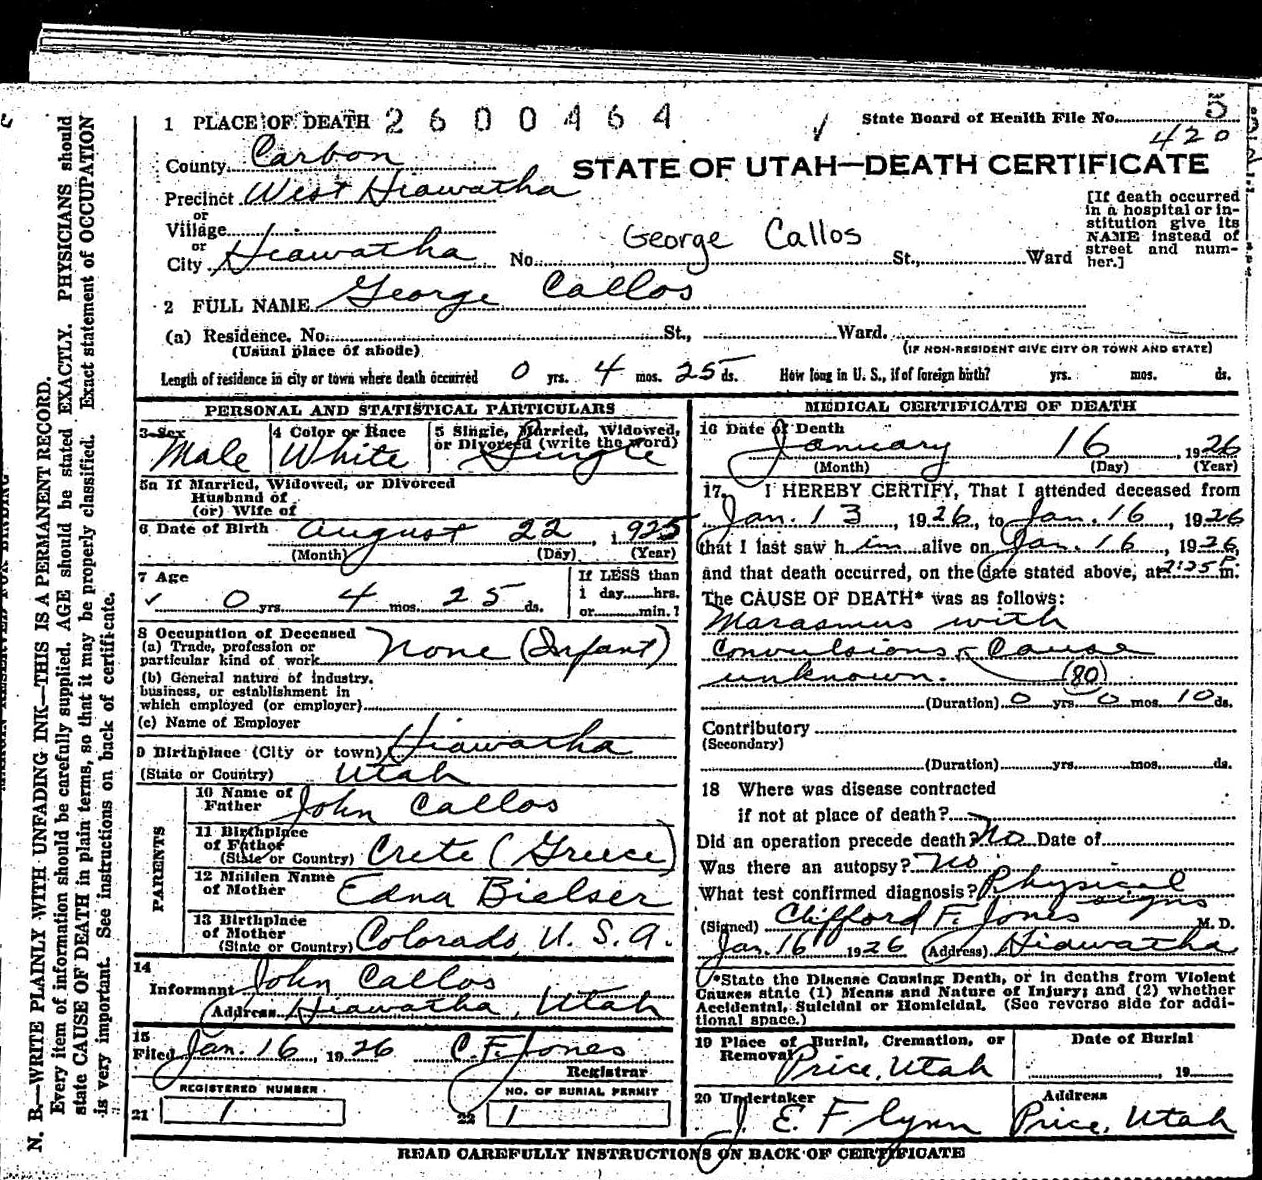 State Board of Health File No. 5
1 PLACE OF DEATH 2600464
420
County Carbon
STATE OF UTAH—DEATH CERTIFICATE
Precinct West Hiawatha
or
Village
or
City Hiawatha No. George Callos St., Ward
[If death occurred
in a hospital or in-
stitution give its
NAME instead of
street and num-
ber.]
2 FULL NAME George Callos
(a) Residence. No. St., Ward.
(Usual place of abode) (IF NON-RESIDENT GIVE CITY OR TOWN AND STATE)
Length of residence in city or town where death occurred 0 yrs. 4 mos. 25 ds. How long in U. S., if of foreign birth? yrs. mos. ds.
PERSONAL AND STATISTICAL PARTICULARS
3 Sex Male
4 Color or Race White
5 Single, Married, Widowed,
or Divorced (write the word) Single
5a If Married, Widowed, or Divorced
Husband of
(or) Wife of
6 Date of Birth August 22, 1925
(Month) (Day) (Year)
7 Age
0 yrs. 4 mos. 25 ds.
If LESS than
1 day hrs.
or min.?
8 Occupation of Deceased
(a) Trade, profession or
particular kind of work None (Infant)
(b) General nature of industry,
business, or establishment in
which employed (or employer)
(c) Name of Employer
9 Birthplace (City or town) Hiawatha
(State or Country) Utah
PARENTS
10 Name of
Father John Callos
11 Birthplace
of Father
(State or Country) Crete (Greece)
12 Maiden Name
of Mother Edna Bielser
13 Birthplace
of Mother
(State or Country) Colorado, U. S. A.
14
Informant John Callos
(Address Hiawatha, Utah
15
Filed Jan. 16, 1926 C. F. Jones
Registrar
REGISTERED NUMBER NO. OF BURIAL PERMIT
21 1 22 1
MEDICAL CERTIFICATE OF DEATH
16 Date of Death
January 16, 1926
(Month) (Day) (Year)
17. I HEREBY CERTIFY, That I attended deceased from
Jan. 13, 1926, to Jan. 16, 1926
that I last saw him alive on Jan. 16, 1926,
and that death occurred, on the date stated above, at 2:25 P. m.
The CAUSE OF DEATH* was as follows:
Marasmus with
Convulsions Cause
unknown. (80)
(Duration) 0 yrs. 0 mos. 10 ds.
Contributory
(Secondary)
(Duration) yrs. mos. ds.
18 Where was disease contracted
if not at place of death?
Did an operation precede death? No Date of
Was there an autopsy? No
What test confirmed diagnosis? Physical signs
(Signed) Clifford F. Jones M. D.
Jan. 16 1926 (Address) Hiawatha
*State the Disease Causing Death, or in deaths from Violent
Causes state (1) Means and Nature of Injury; and (2) whether
Accidental, Suicidal or Homicidal. (See reverse side for addi-
tional space.)
19 Place of Burial, Cremation, or
Removal Price, Utah
Date of Burial
, 19
20 Undertaker
J. E. Flynn
Address
Price, Utah
READ CAREFULLY INSTRUCTIONS ON BACK OF CERTIFICATE
N. B.—WRITE PLAINLY WITH UNFADING INK—THIS IS A PERMANENT RECORD.
Every item of information should be carefully supplied. AGE should be stated EXACTLY. PHYSICIANS should
state CAUSE OF DEATH in plain terms, so that it may be properly classified. Exact statement of OCCUPATION
is very important. See instructions on back of certificate.